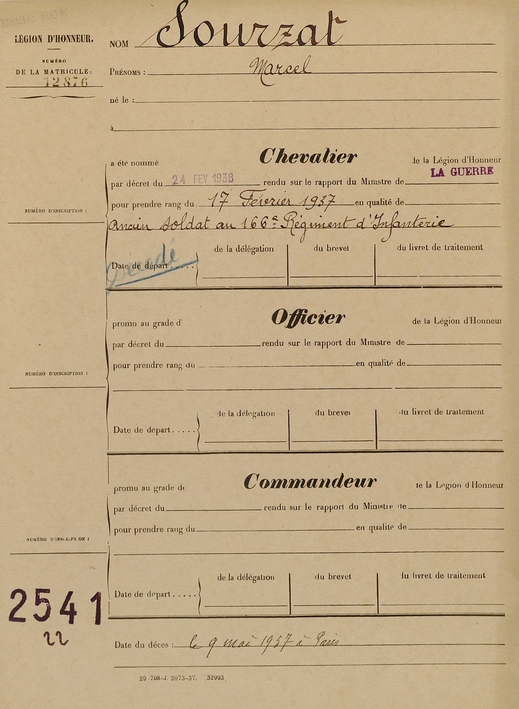 LÉGION D'HONNEUR.
NUMÉRO
DE LA MATRICULE:
12876
NOM Sourzat
PRÉNOMS: Marcel
né le:
à
a été nommé Chevalier de la Légion d'Honneur
par décret du 24 FEV 1938 rendu sur le rapport du Ministre de LA GUERRE
pour prendre rang du 17 Février 1937 en qualité de
NUMÉRO D'INSCRIPTION:
Ancien soldat au 166e Régiment d'Infanterie
de la délégation du brevet du livret de traitement
Date de départ
promu au grade d' Officier de la Légion d'Honneur
par décret du rendu sur le rapport du Ministre de
pour prendre rang du en qualité de
NUMÉRO D'INSCRIPTION:
de la délégation du brevet du livret de traitement
Date de départ.....
promu au grade de Commandeur de la Légion d'Honneur
par décret du rendu sur le rapport du Ministre de
pour prendre rang du en qualité de
NUMÉRO D'INSCRIPTION:
de la délégation du brevet du livret de traitement
Date de départ.....
2541
22
Date du décès: le 9 mai 1957 à Paris
29-708-J. 2073-37. 32993